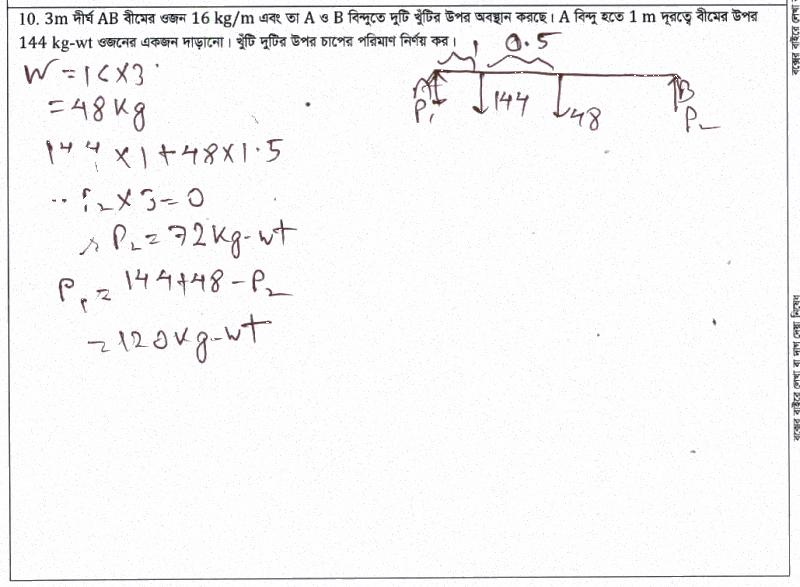 10. 3m দীর্ঘ AB বীমের ওজন 16 kg/m এবং তা A ও B বিন্দুতে দুটি খুঁটির উপর অবস্থান করছে। A বিন্দু হতে 1 m দূরত্বে বীমের উপর
144 kg-wt ওজনের একজন দাড়ানো। খুঁটি দুটির উপর চাপের পরিমাণ নির্ণয় কর।
W = 16 × 3
= 48 kg
144 × 1 + 48 × 1.5
- P₂ × 3 = 0
∴ P₂ = 72 kg-wt
P₁ = 144 + 48 - P₂
= 120 kg-wt
1 0.5
A B
P₁ 144 48 P₂
বক্সের বাইরে লেখা বা দাগ দেয়া নিষেধ